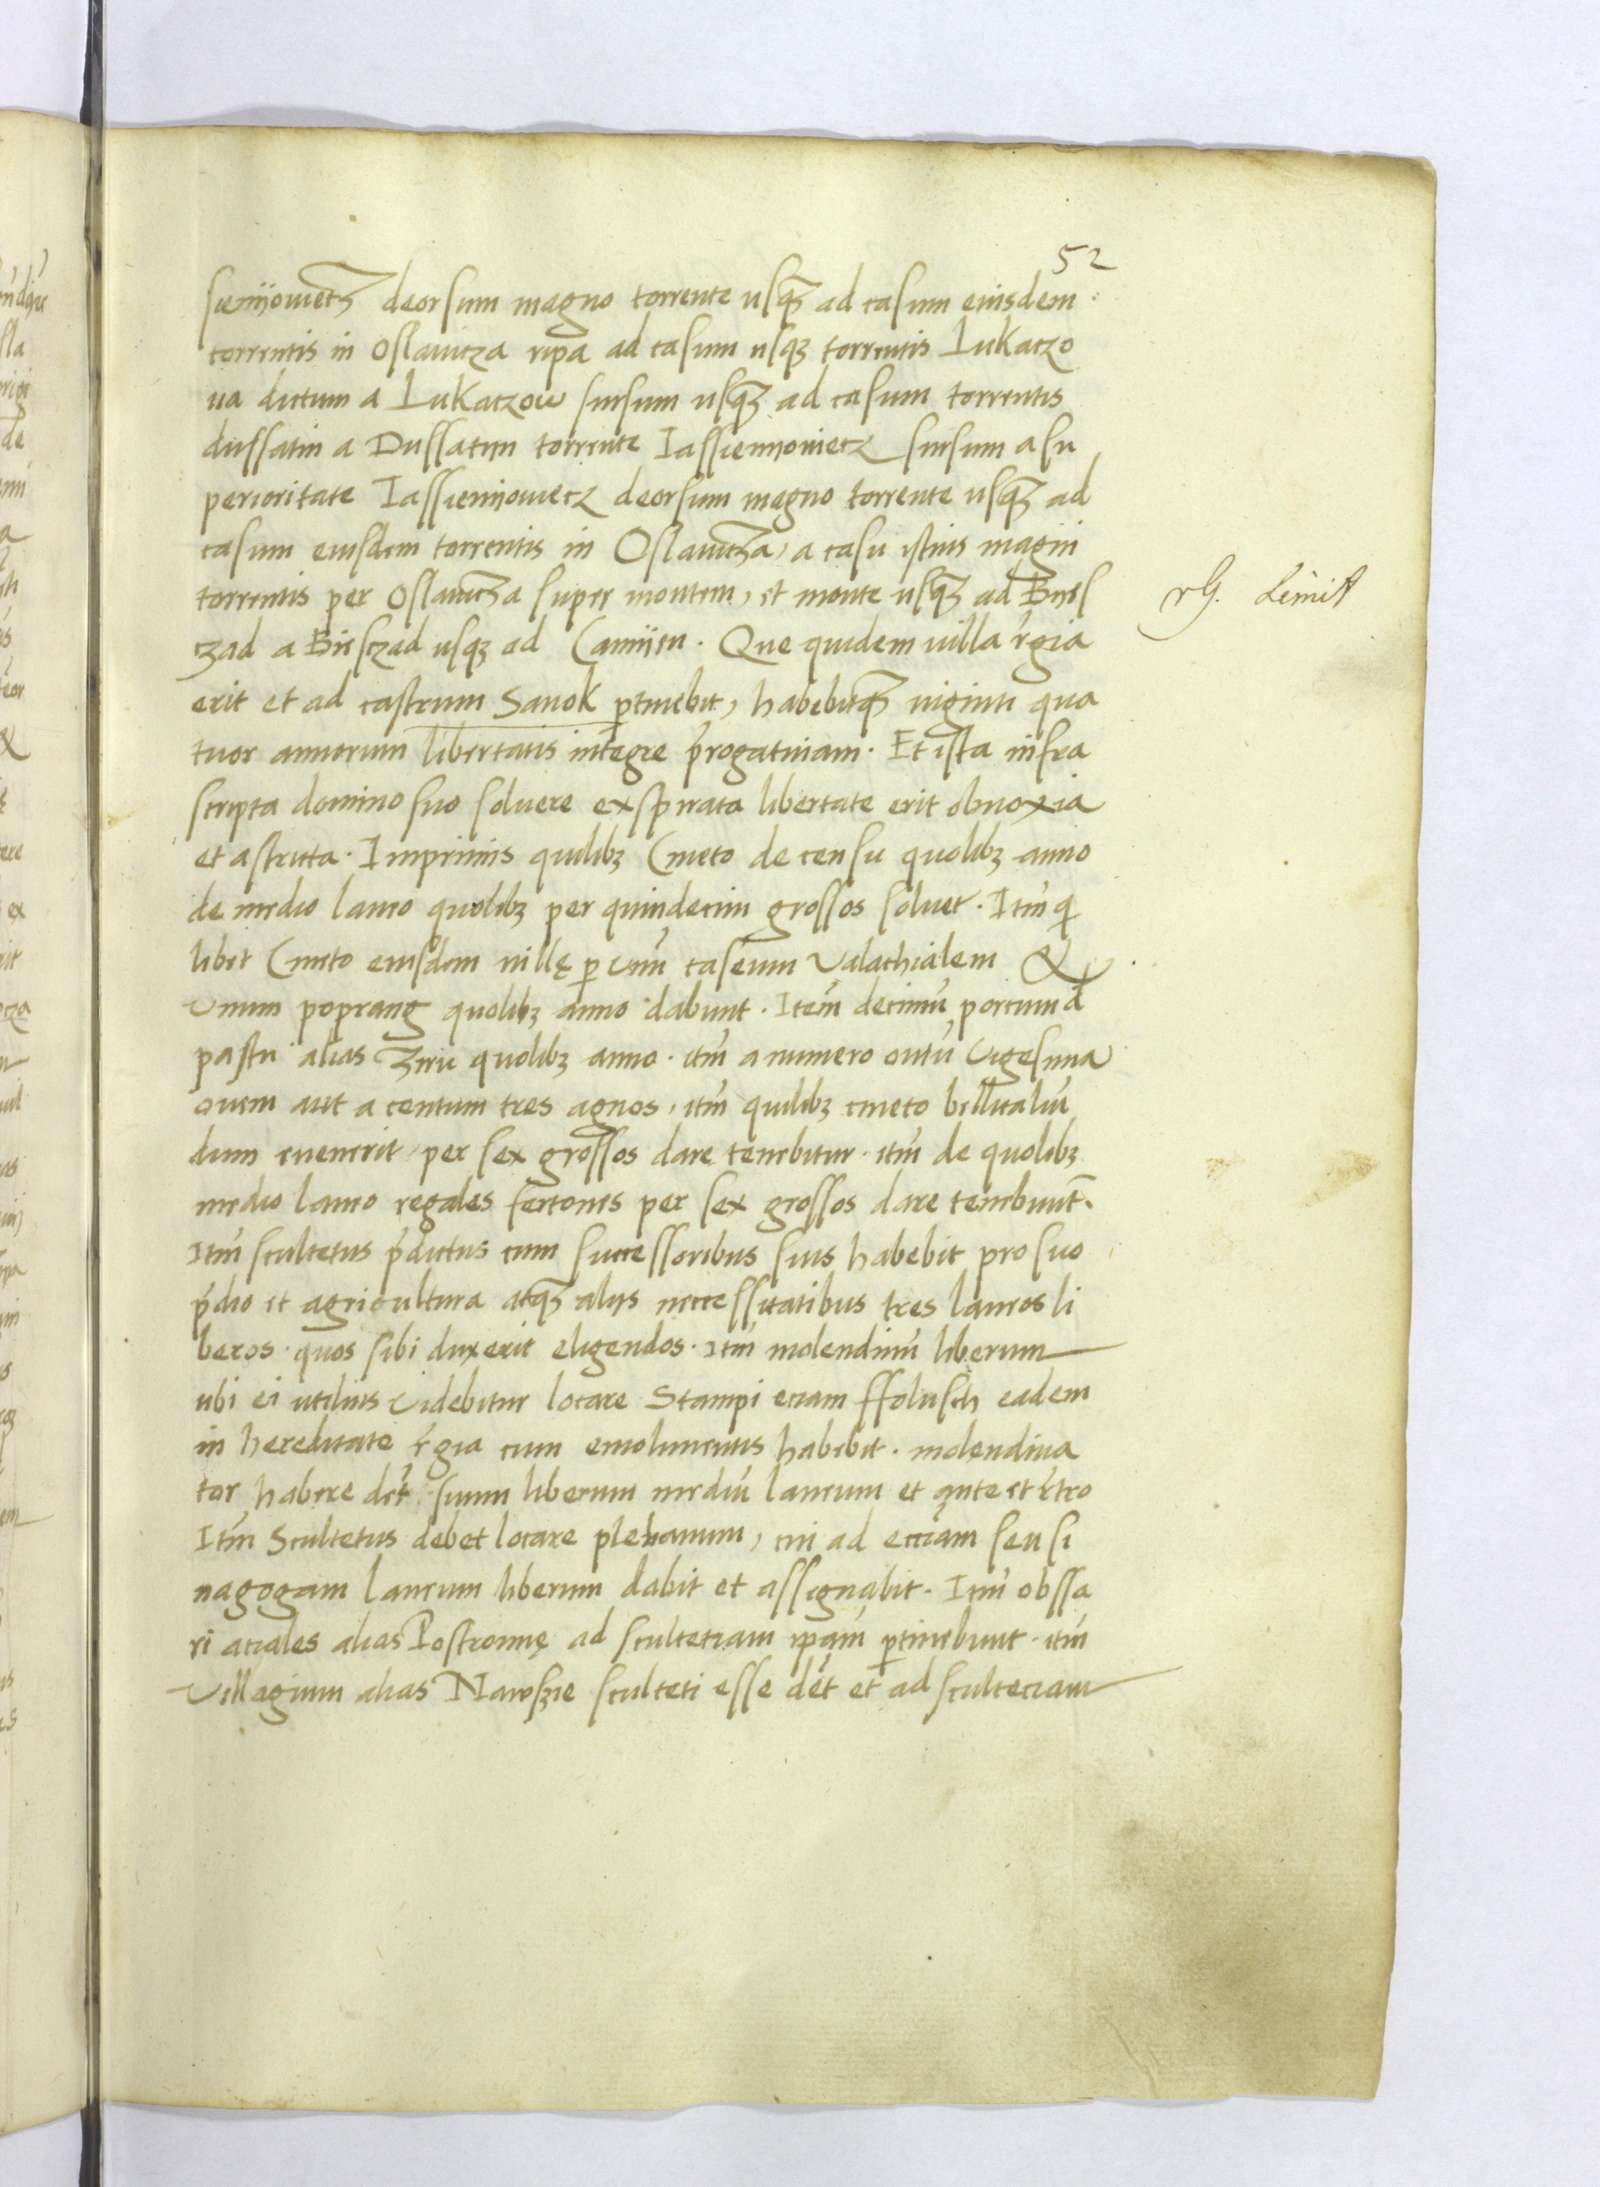 52
sienijowecz deorsum magno torrente usq3 ad casum eiusdem
torrentis in Oslavicza ripa ad casum usq3 torrentis Lukaczo
va dictum a Lukaczow sursum usq3 ad casum torrentis
dussatin a Dussatyn torrente Iassienijowiecz sursum a su
perioritate Iassienijowiecz deorsum magno torrente usq3 ad
casum eiusdem torrentis in Oslavicza, a casu istius magni
torrentis per Oslavicza super montem, et monte usq3 ad Byes
czad a Biesczad usq3 ad Camijen. Que quidem villa rgia
erit et ad castrum Sanok ptinebit, habebitq3 viginti qua
tuor annorum libertatis integre progativam. Et ista infra
scripta domino suo solvere exspirata libertate erit obnoxia
et astricta. Imprimis quilib3 Cmeto de censu quolib3 anno
de medio laneo quolib3 per quindecim grossos solvet. Itm qi
libet Cmeto eiusdem villę p unu caseum Valachialem &
Unum poprang quolib3 anno dabunt. Item decimu porcum d
pastu alias Zeru quolib3 anno. itm a numero oviu Vigesima
ovem aut a centum tres agnos, itm quilib3 cmeto bellicaliu
dum evenerit per sex grossos dare tenebitur. itm de quolib3
medio laneo regales fertones per sex grossos dare tenebunt.
Itm scultetus pdictus cum successoribus suis habebit pro suo
pdio et agricultura atq3 alijs necessitatibus tres laneos li
beros quos sibi duxerit eligendos. itm molendinu liberum
ubi ei utilius Videbitur locare Stampi eciam ffolusch eadem
in hereditate rgia cum emolumentis habebit. molendina
tor habere det suum liberum mediu laneum et ante et retro
Itm Scultetus debet locare plebanum, cui ad ecciam seu si
nagogam laneum liberum dabit et assignabit. Itm obssa
ri aciales alias Postronnę ad sculteciam ipam ptinebunt. itm
Villagium alias Nawszie sculteti esse det et ad sculteciam
rG. Limit